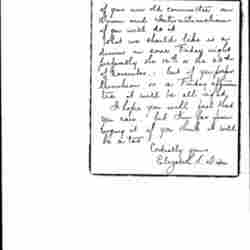 of your new old committee on
and International
if you will do it
What we should like is a
dinner on some Friday night
preferably the 10th or the
of November, but if you prefer
luncheon or a Friday afternoon
tea it will be all right.
I hope you will feel that
you can, but
if you think it will
be a tax
Cordially yours
Elizabeth